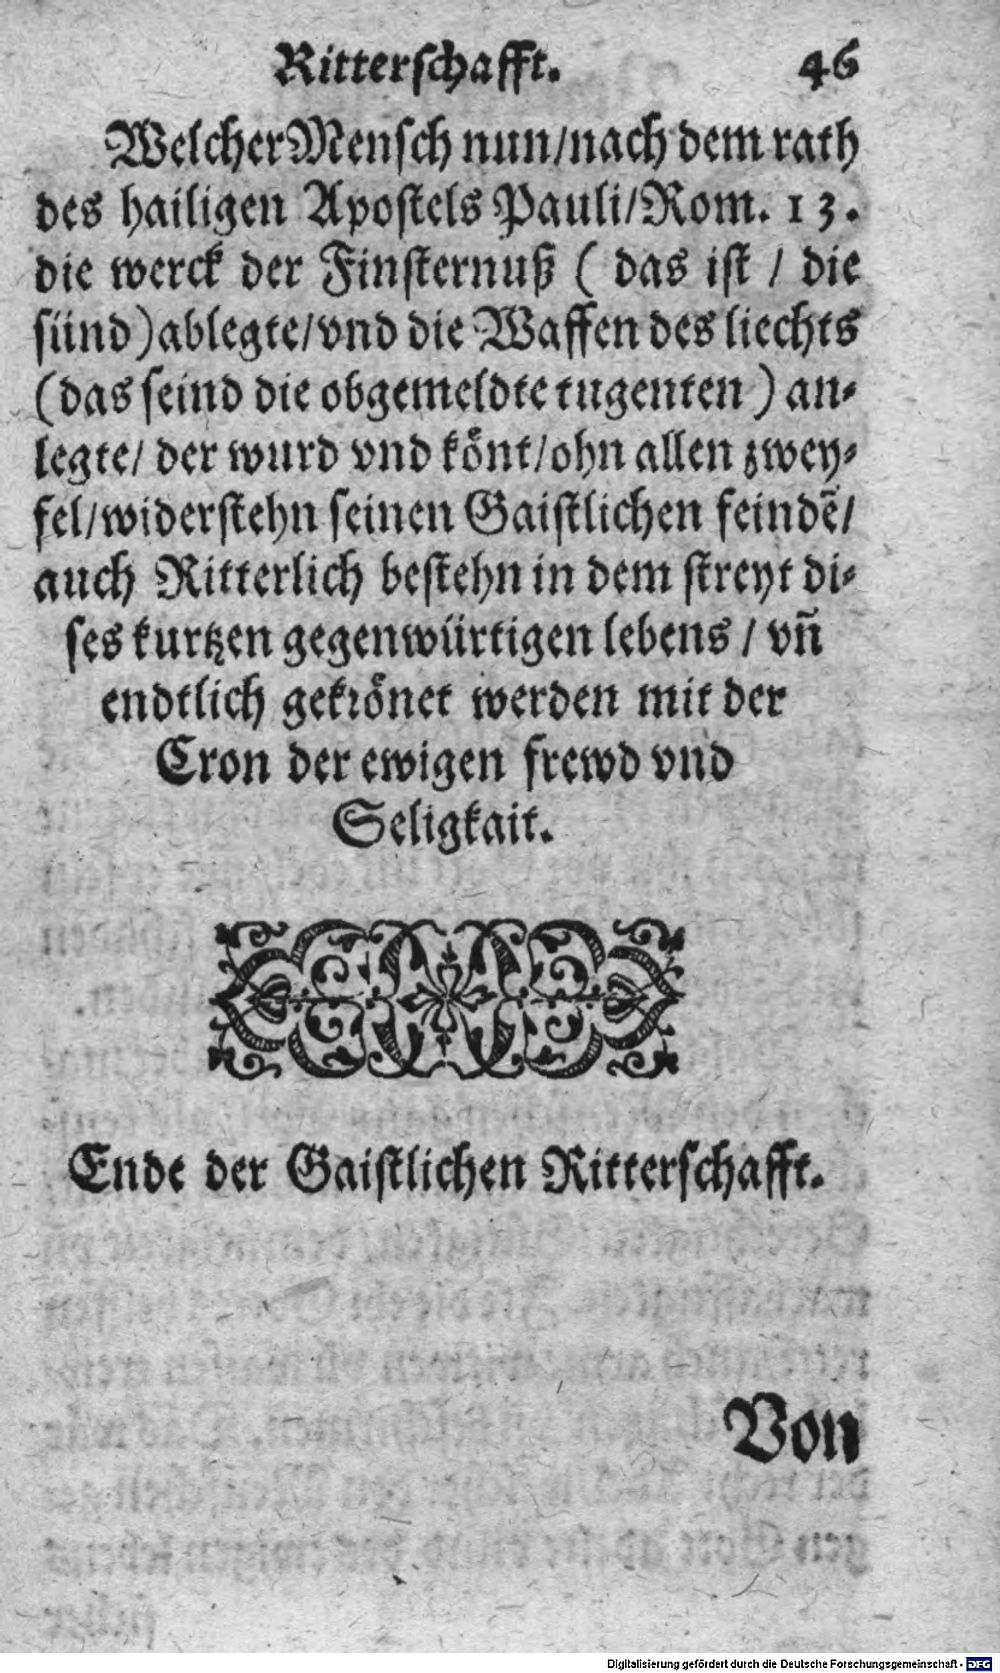 Ritterschafft. 46
Welcher Mensch nun/nach dem rath
des hailigen Apostels Pauli/Rom. 13.
die werck der Finsternuß ( das ist / die
sünd)ablegte/vnd die Waffen des liechts
(das seind die obgemeldte tugenten ) an-
legte/ der wurd vnd könt/ohn allen zwey-
fel/widerstehn seinen Gaistlichen feindẽ/
auch Ritterlich bestehn in dem streyt di-
ses kurtzen gegenwürtigen lebens / vñ
endtlich gekrönet werden mit der
Cron der ewigen frewd vnd
Seligkait.
Ende der Gaistlichen Ritterschafft.
Von
Digitalisierung gefördert durch die Deutsche Forschungsgemeinschaft - DFG